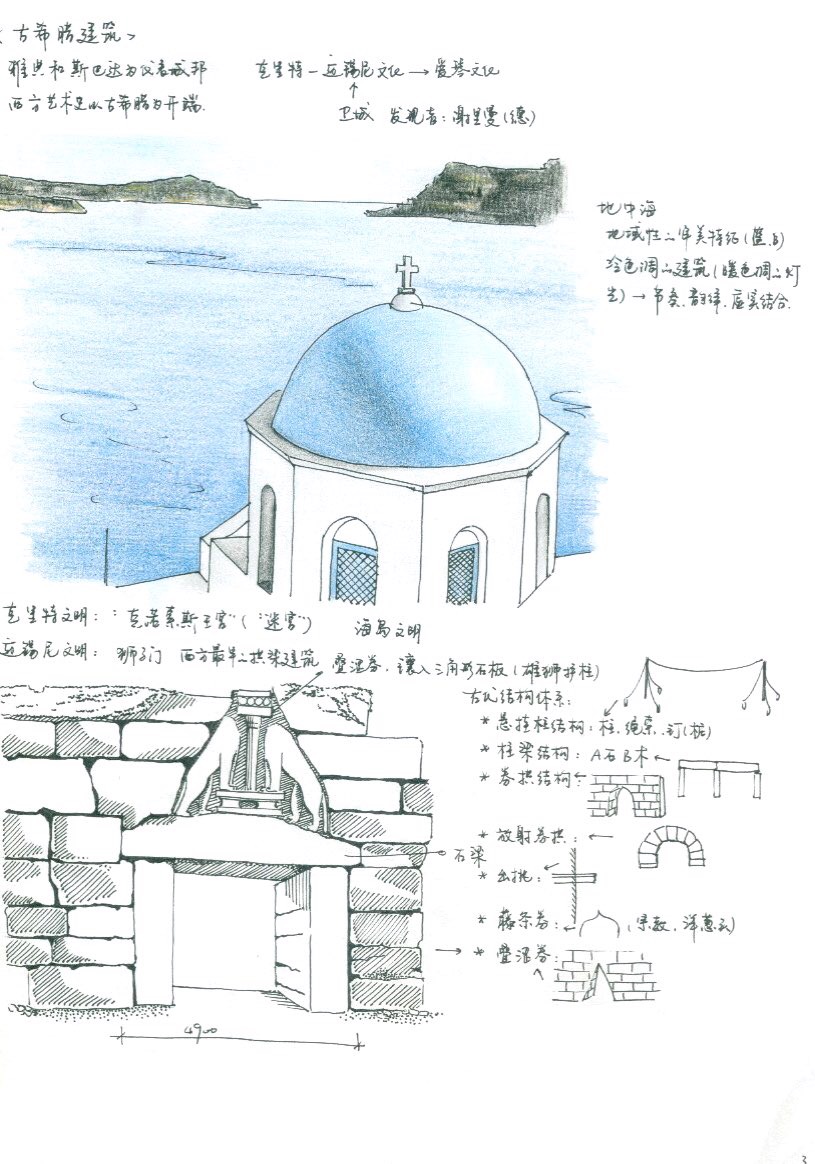 <古希腊建筑>
雅典和斯巴达为代表城邦
西方艺术史以古希腊为开端.
克里特－迈锡尼文化→爱琴文化
↑
卫城 发现者：谢里曼(德)
地中海
地域性的审美特征(蓝.白)
冷色调的建筑(暖色调的灯
光)→节奏.韵律.虚实结合.
克里特文明："克诺索斯王宫"("迷宫") 海岛文明
迈锡尼文明：狮子门 西方最早的拱券建筑 叠涩券.镶入三角形石板(雄狮护柱)
古代结构体系：
*悬挂柱结构：柱.绳索.钉(桩)
*柱梁结构：A石B木
*券拱结构
*放射券拱：
石梁
*出挑：
*藤条券： (宗教.洋葱头)
→ *叠涩券：
4900
3